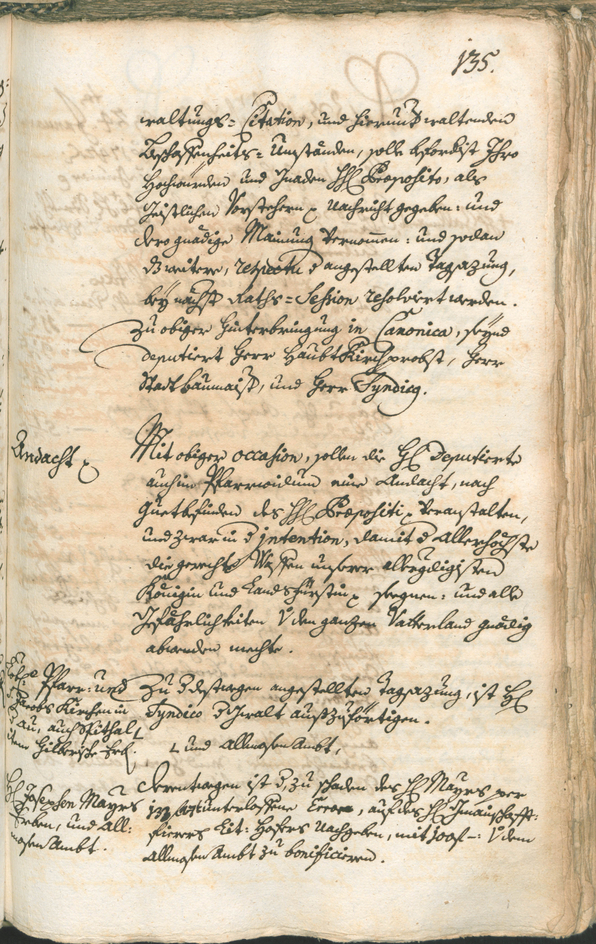 135.
waltungs= Citation, und hierunter waltenden
Beschaffenheits= Umständen, solle befordist Ihro
Hochwürden und Gnaden H: Præposito, als
Geistlichen Vorstehern Nachricht gegeben: und
dero gnädige Mainung vernommen: und sodan
d weitere, respectu d angestellten Tagsazung,
bey nächst Raths= Session resolviert werden.
Zu obiger Hinterbringung in Canonica, seynd
deputiert Herr Haubt Kirchprobst, Herr
Stadtbaumaist, und Herr Syndicq.
Andacht
Mit obiger occasion, sollen die H: Deputierte
auch im Pfarrwidum eine Andacht, nach
Guetbefinden des H: Præpositi veranstalten,
und zwar in d intention, damit d Allerhöchste
die gerechte Waffen unserer allergdigisten
Königin und Landsfürstin seegnen: und alle
Gefährlichkeiten v dem ganzen Vatterland gnädig
abwenden mechte.
Pfarr= und
Jacobs Kirchen in
au, auch Spithal
Hilberische
Zu d destwegen angestellten Tagsazung, ist H:
Syndico d Gwalt auszuförtigen.
und Allmosen Ambt,
H: Josephen Mayrs
Erben, und All=
mosen Ambt.
Derentwegen ist d, zu schaden des H: Mayrs per
unterlossene, auf des H:
Hofers Nachgeben, mit v dem
Allmosen Ambt zu bonificieren.